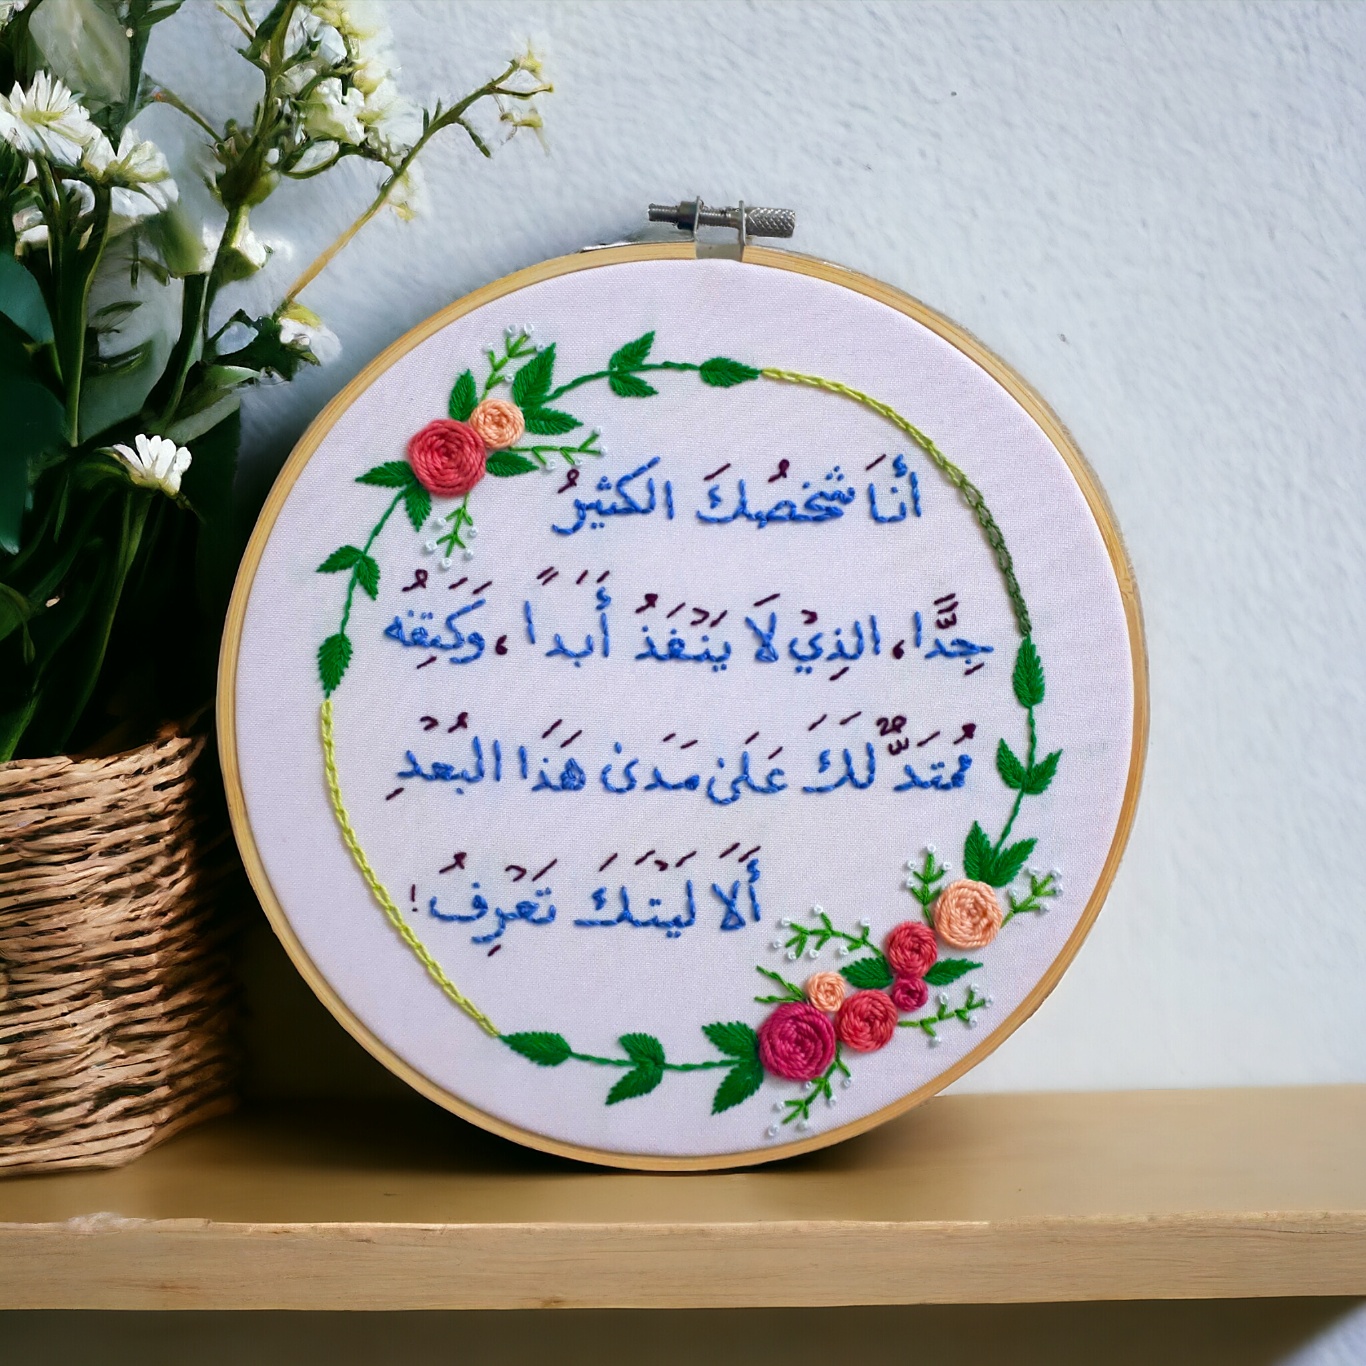 أَنَا شَخصُكَ الكثيرُ
جِدًّا، الذِيْ لَا يَنْفَذُ أَبَداً، وَكَتِفُه
مُمتَدٌّ لَكَ عَلَىٰ مَدَىٰ هَذَا البُعْدِ
أَلَا لَيْتَكَ تَعْرِفُ!